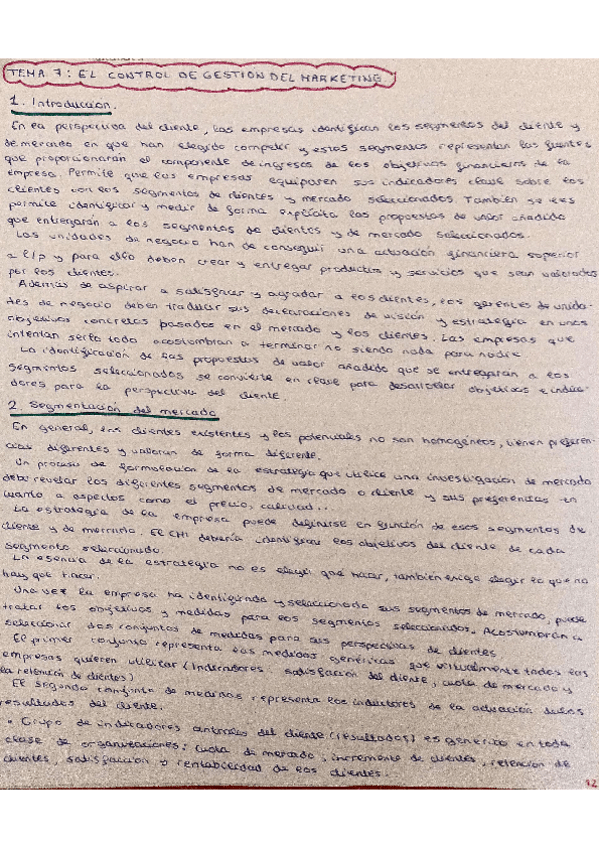 TEMA 7: EL CONTROL DE GESTION DEL MARKETING.
1. Introducción.
En la perspectiva del cliente, las empresas identifican los segmentos del cliente y
de mercado en que han elegido competir y estos segmentos representan las fuentes
que proporcionarán el componente de ingresos de los objetivos financieros de la
empresa. Permite que las empresas equiparen sus indicadores clave sobre los
clientes con los segmentos de clientes y mercado seleccionados. También se les
permite identificar y medir de forma explícita las propuestas de valor añadido
que entregarán a los segmentos de clientes y de mercado seleccionados.
Las unidades de negocio han de conseguir una actuación financiera superior
a l/p y para ello deben crear y entregar productos y servicios que sean valorados
por los clientes.
Además de aspirar a satisfacer y agradar a los clientes, los gerentes de unida-
des de negocio deben traducir sus declaraciones de visión y estrategia en unos
objetivos concretos basados en el mercado y los clientes. Las empresas que
intentan serlo todo acostumbran a terminar no siendo nada para nadie.
La identificación de las propuestas de valor añadido que se entregarán a los
segmentos seleccionados se convierte en clave para desarrollar objetivos e indica-
dores para la perspectiva del cliente.
2 Segmentación del mercado
En general, los clientes existentes y los potenciales no son homogéneos, tienen preferen-
cias diferentes y valoran de forma diferente.
Un proceso de formulación de la estrategia que utilice una investigación de mercado
debe revelar los diferentes segmentos de mercado o cliente y sus preferencias en
cuanto a aspectos como el precio, calidad...
La estrategia de la empresa puede definirse en función de esos segmentos de
cliente y de mercado. El CMI debería identificar los objetivos del cliente de cada
segmento seleccionado.
La esencia de la estrategia no es elegir qué hacer, también exige elegir lo que no
hay que hacer.
Una vez la empresa ha identificado y seleccionado sus segmentos de mercado, puede
tratar los objetivos y medidas para los segmentos seleccionados. Acostumbran a
seleccionar dos conjuntos de medidas para sus perspectivas de clientes
El primer conjunto representa las medidas genéricas que virtualmente todas las
empresas quieren utilizar (Indicadores: satisfacción del cliente, cuota de mercado y
la retención de clientes)
El segundo conjunto de medidas representa los inductores de la actuación de los
resultados del cliente.
• Grupo de indicadores centrales del cliente (resultados) es genérico en toda
clase de organizaciones: cuota de mercado, incremento de clientes, retención de
clientes, satisfacción o rentabilidad de los clientes.
12